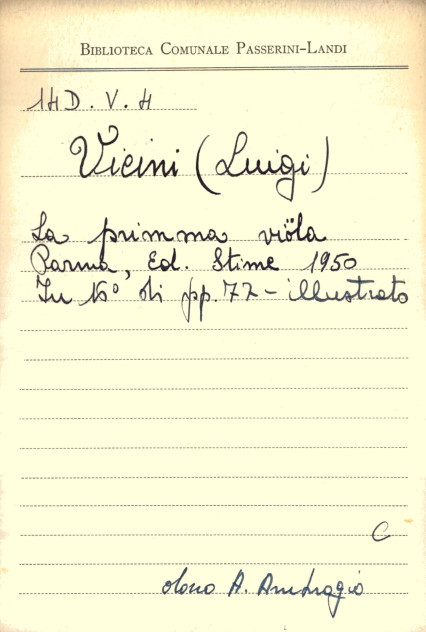 BIBLIOTECA COMUNALE PASSERINI-LANDI
14D. V. 4
Vicini (Luigi)
La primma viöla
Parma, Ed. Stime 1950
In 16° di pp. 77 - illustrato
C
dono A. Ambrogio